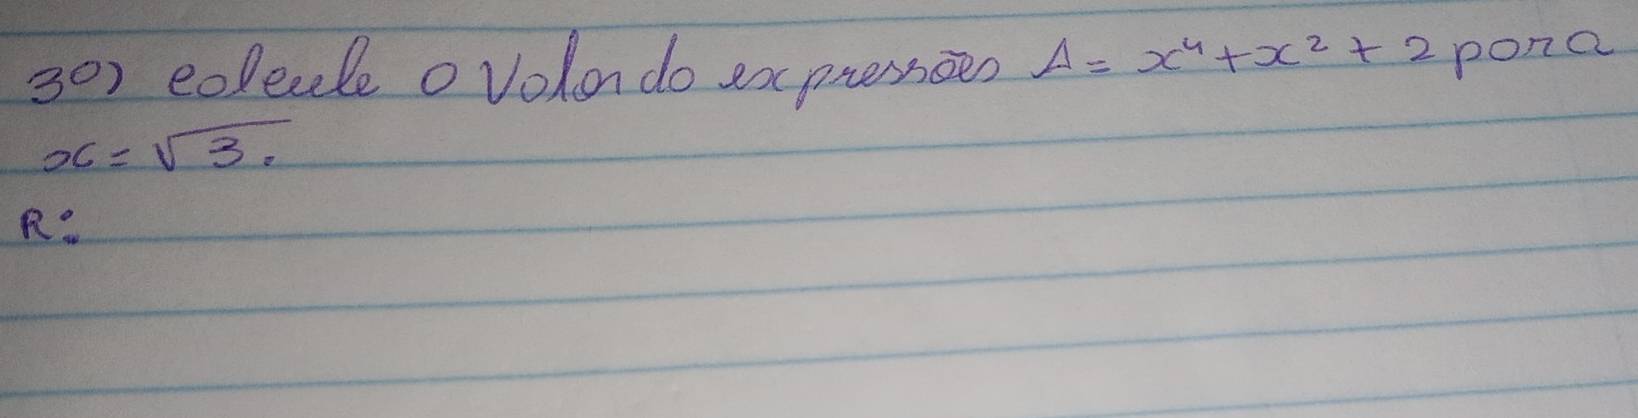 30) calcule o Valor do expressões A = x⁴ + x² + 2 para
x = √3.
R: